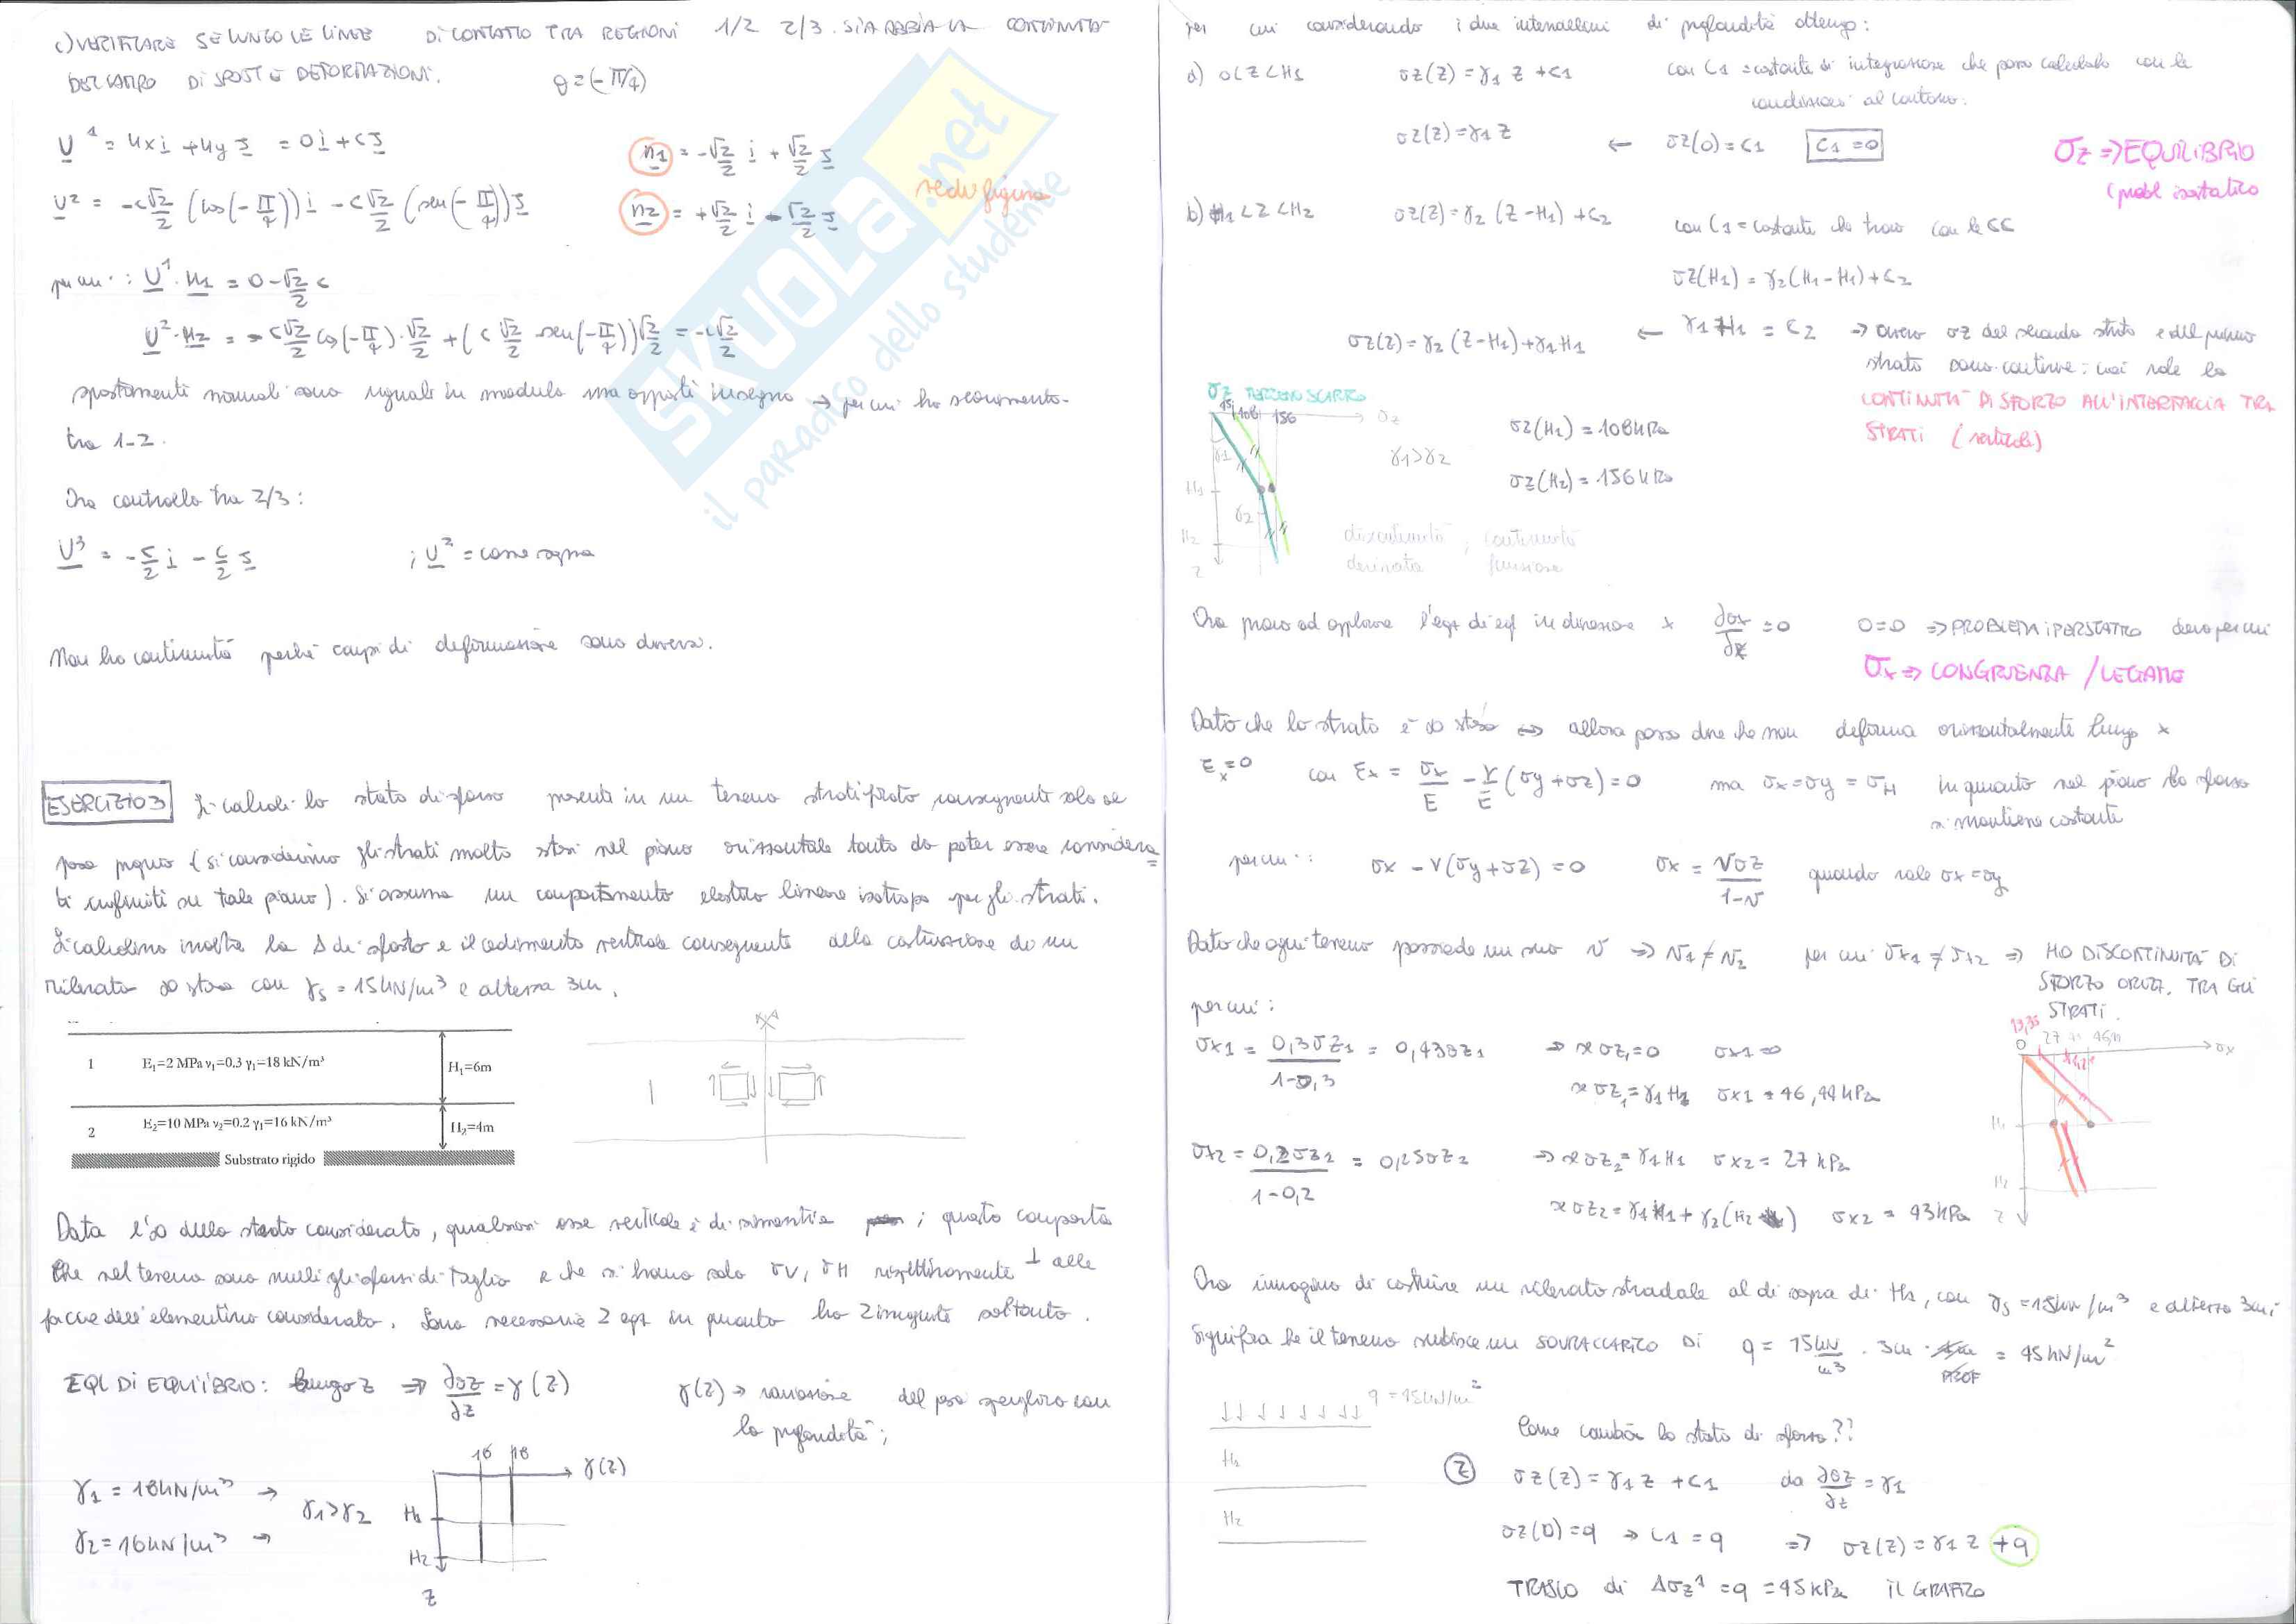 c) VERIFICARE SE LUNGO LE LINEE DI CONTATTO TRA REGIONI 1/2 2/3. SI ABBIA LA CONTINUITÀ
DEL CAMPO DI SPOST E DEFORMAZIONI. θ=(-π/4)
U¹ = uxi + uyj = 0i + cj
n1 = -√2/2 i + √2/2 j
U² = -c√2/2 (cos(-π/4))i - c√2/2 (sen(-π/4))j
n2 = +√2/2 i - √2/2 j
vedi figura
per cui: U¹·n1 = 0-√2/2 c
U²·n2 = -c√2/2 cos(-π/4)·√2/2 + (c√2/2 sen(-π/4))√2/2 = -c√2/2
spostamenti normali sono uguali in modulo ma opposti in segno → per cui ho scorrimento
tra 1-2.
Ora controllo tra 2/3:
U³ = -c/2 i - c/2 j ; U² = come sopra
Non ho continuità perché campi di deformazione sono diversi.
ESERCIZIO 3 Si calcoli lo stato di sforzo presente in un terreno stratificato conseguente solo al
peso proprio (si considerino gli strati molto stesi nel piano orizzontale tanto da poter essere considera=
ti infiniti su tale piano). Si assuma un comportamento elastico lineare isotropo per gli strati.
Si calcolino inoltre la Δ di sforzo e il cedimento verticale conseguente alla costruzione di un
rilevato ∞ steso con γs = 15kN/m³ e altezza 3m.
1 E1=2 MPa ν1=0.3 γ1=18 kN/m³ H1=6m
2 E2=10 MPa ν2=0.2 γ1=16 kN/m³ H2=4m
Substrato rigido
Data l'∞ dello strato considerato, qualsiasi asse verticale è di simmetria ; questo comporta
che nel terreno sono nulli gli sforzi di taglio e che si hanno solo σV, σH rispettivamente ⊥ alle
facce dell'elementino considerato. Sono necessarie 2 eqz in quanto ho 2 incognite soltanto.
EQZ DI EQUILIBRIO: lungo z ⇒ ∂σz/∂z = γ(z) γ(z) → variazione del peso specifico con
la profondità;
γ1 = 18kN/m³ →
γ2 = 16kN/m³ →
γ1>γ2
16 18 γ(z)
H1
H2
z
per cui considerando i due intervallini di profondità ottengo:
a) 0<Z<H1 σz(z) = γ1 z + c1 con C1 = costante di integrazione che posso calcolare con le
condizioni al contorno.
σz(z)=γ1 z ← σz(0)=c1 C1=0
σz ⇒ EQUILIBRIO
(probl isostatico
b) H1<Z<H2 σz(z) = γ2 (z-H1) + c2 con C1 = costante che trovo con le CC
σz(H1) = γ2(H1-H1)+c2
σz(z) = γ2 (z-H1)+γ1H1 ← γ1H1 = c2 → ovvero σz del secondo strato e del primo
strato sono continue: vale la
CONTINUITÀ DI SFORZO ALL'INTERFACCIA TRA
STRATI (verticale)
σz
108 156 σz
γ1
H1
γ2
H2
z
γ1>γ2
σz(H1) = 108kPa
σz(H2) = 156kPa
discontinuità ; continuità
derivata funzione
Ora provo ad applicare l'eqz di eql in direzione x ∂σx/∂x = 0 0=0 ⇒ PROBLEMA IPERSTATICO
σx ⇒ CONGRUENZA / LEGAME
Dato che lo strato è ∞ steso ⇔ allora posso dire che non deforma orizzontalmente lungo x
εx=0 con εx = σx/E - ν/E (σy+σz)=0 ma σx=σy=σH in quanto nel piano lo sforzo
si mantiene costante
per cui: σx - ν(σy+σz)=0 σx = νσz/1-ν quando vale σx=σy
Dato che ogni terreno possiede un suo ν ⇒ ν1≠ν2 per cui σx1≠σx2 ⇒ HO DISCONTINUITÀ DI
SFORZO ORIZZ. TRA GLI
STRATI.
per cui:
σx1 = 0,3σz1/1-0,3 = 0,43σz1 ⇒ x σz1=0 σx1=0
x σz1=γ1H1 σx1=46,44kPa
σx2 = 0,2σz2/1-0,2 = 0,25σz2 ⇒ x σz2=γ1H1 σx2=27 kPa
x σz2=γ1H1+γ2(H2) σx2 = 43kPa
19,35
0 27 σx
H1
H2
z
Ora immagino di costruire un rilevato stradale al di sopra di H1, con γs=15kN/m³ e altezza 3m;
Significa che il terreno subisce un SOVRACCARICO DI q = 15kN/m³ · 3m = 45kN/m²
q = 45kN/m²
H1
H2
Come cambia lo stato di sforzo??
② σz(z) = γ1 z + c1 da ∂σz/∂z = γ1
σz(0)=q → c1 = q ⇒ σz(z) = γ1 z +q
TRASLO di Δσz¹ = q = 45kPa IL GRAFICO
SKUOLA.net
il paradiso dello studente